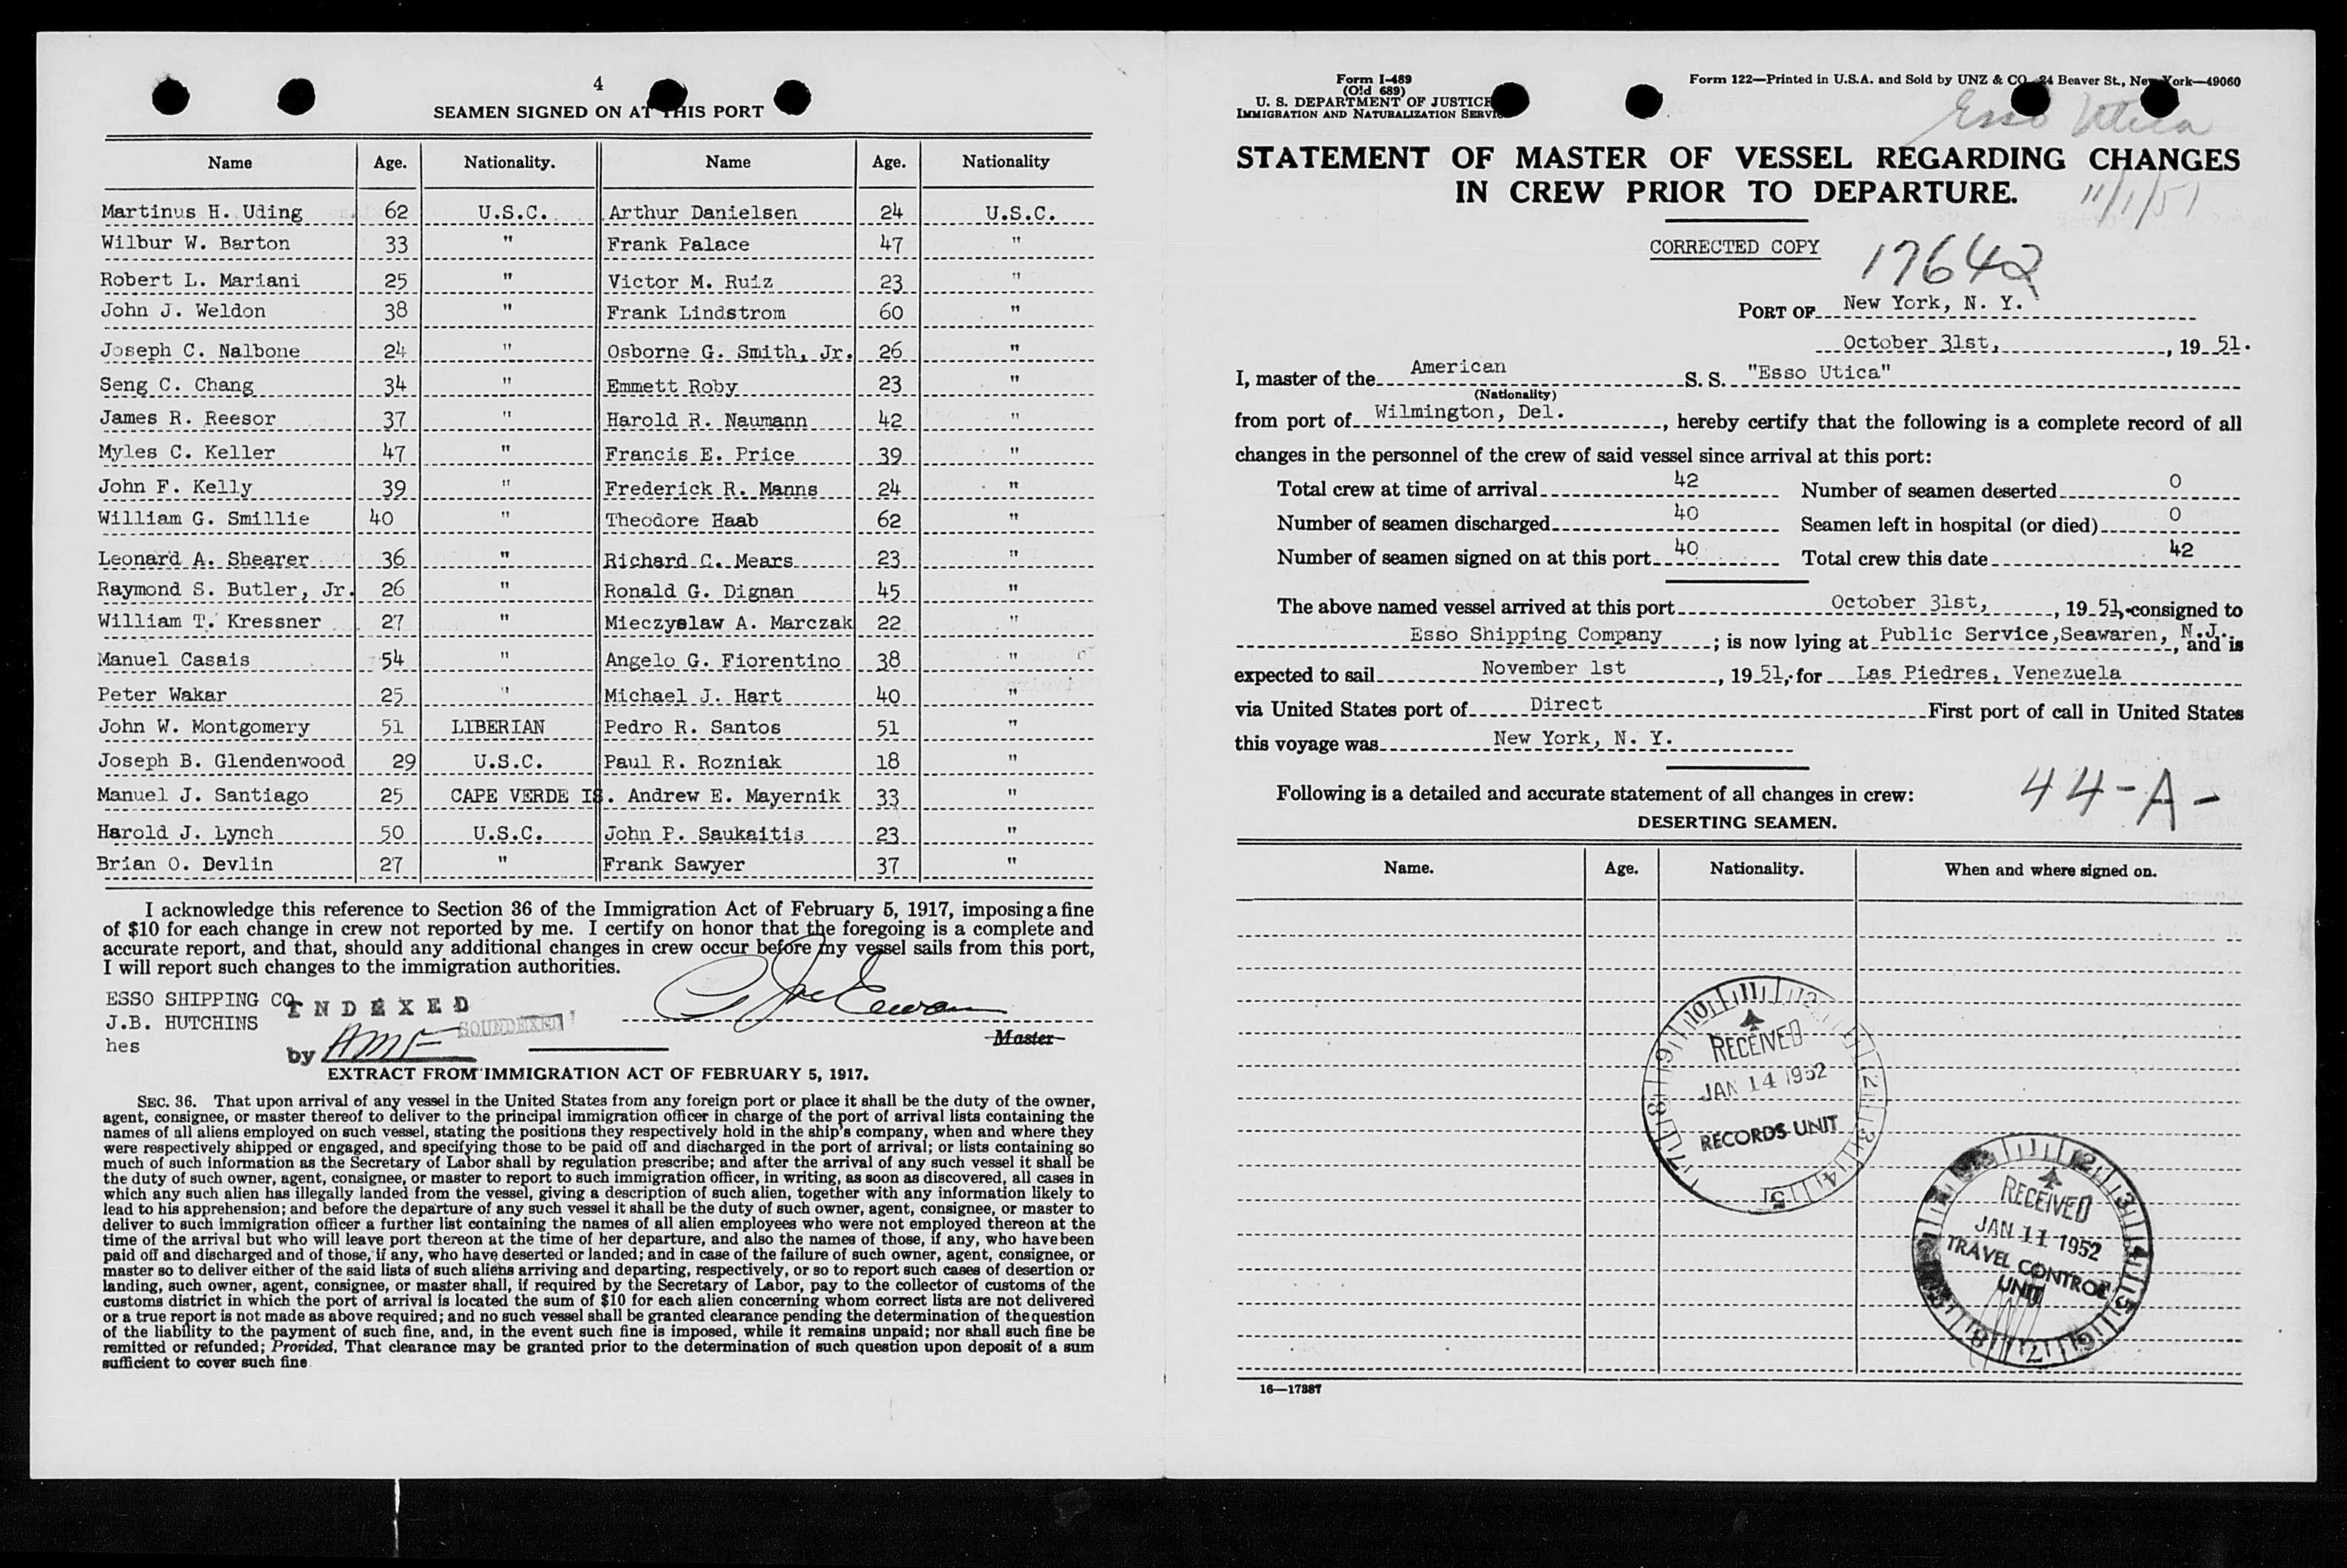 4
SEAMEN SIGNED ON AT THIS PORT
Name Age. Nationality. Name Age. Nationality
Martinus H. Uding 62 U.S.C. Arthur Danielsen 24 U.S.C.
Wilbur W. Barton 33 " Frank Palace 47 "
Robert L. Mariani 25 " Victor M. Ruiz 23 "
John J. Weldon 38 " Frank Lindstrom 60 "
Joseph C. Nalbone 24 " Osborne G. Smith, Jr. 26 "
Seng C. Chang 34 " Emmett Roby 23 "
James R. Reesor 37 " Harold R. Naumann 42 "
Myles C. Keller 47 " Francis E. Price 39 "
John F. Kelly 39 " Frederick R. Manns 24 "
William G. Smillie 40 " Theodore Haab 62 "
Leonard A. Shearer 36 " Richard C. Mears 23 "
Raymond S. Butler, Jr. 26 " Ronald G. Dignan 45 "
William T. Kressner 27 " Mieczyslaw A. Marczak 22 "
Manuel Casais 54 " Angelo G. Fiorentino 38 "
Peter Wakar 25 " Michael J. Hart 40 "
John W. Montgomery 51 LIBERIAN Pedro R. Santos 51 "
Joseph B. Glendenwood 29 U.S.C. Paul R. Rozniak 18 "
Manuel J. Santiago 25 CAPE VERDE IS. Andrew E. Mayernik 33 "
Harold J. Lynch 50 U.S.C. John P. Saukaitis 23 "
Brian O. Devlin 27 " Frank Sawyer 37 "
I acknowledge this reference to Section 36 of the Immigration Act of February 5, 1917, imposing a fine
of $10 for each change in crew not reported by me. I certify on honor that the foregoing is a complete and
accurate report, and that, should any additional changes in crew occur before my vessel sails from this port,
I will report such changes to the immigration authorities.
ESSO SHIPPING CO
INDEXED
J.B. HUTCHINS
SOUNDEXED
hes
by
Master
EXTRACT FROM IMMIGRATION ACT OF FEBRUARY 5, 1917.
SEC. 36. That upon arrival of any vessel in the United States from any foreign port or place it shall be the duty of the owner,
agent, consignee, or master thereof to deliver to the principal immigration officer in charge of the port of arrival lists containing the
names of all aliens employed on such vessel, stating the positions they respectively hold in the ship's company, when and where they
were respectively shipped or engaged, and specifying those to be paid off and discharged in the port of arrival; or lists containing so
much of such information as the Secretary of Labor shall by regulation prescribe; and after the arrival of any such vessel it shall be
the duty of such owner, agent, consignee, or master to report to such immigration officer, in writing, as soon as discovered, all cases in
which any such alien has illegally landed from the vessel, giving a description of such alien, together with any information likely to
lead to his apprehension; and before the departure of any such vessel it shall be the duty of such owner, agent, consignee, or master to
deliver to such immigration officer a further list containing the names of all alien employees who were not employed thereon at the
time of the arrival but who will leave port thereon at the time of her departure, and also the names of those, if any, who have been
paid off and discharged and of those, if any, who have deserted or landed; and in case of the failure of such owner, agent, consignee, or
master so to deliver either of the said lists of such aliens arriving and departing, respectively, or so to report such cases of desertion or
landing, such owner, agent, consignee, or master shall, if required by the Secretary of Labor, pay to the collector of customs of the
customs district in which the port of arrival is located the sum of $10 for each alien concerning whom correct lists are not delivered
or a true report is not made as above required; and no such vessel shall be granted clearance pending the determination of the question
of the liability to the payment of such fine, and, in the event such fine is imposed, while it remains unpaid; nor shall such fine be
remitted or refunded; Provided, That clearance may be granted prior to the determination of such question upon deposit of a sum
sufficient to cover such fine.
Form I-489
(Old 689)
U. S. DEPARTMENT OF JUSTICE
IMMIGRATION AND NATURALIZATION SERVICE
Form 122—Printed in U.S.A. and Sold by UNZ & CO. 24 Beaver St., New York—49060
Esso Utica
STATEMENT OF MASTER OF VESSEL REGARDING CHANGES
IN CREW PRIOR TO DEPARTURE.
11/1/51
CORRECTED COPY
17642
PORT OF New York, N. Y.
October 31st, , 19 51.
I, master of the American S. S. "Esso Utica"
(Nationality)
from port of Wilmington, Del. , hereby certify that the following is a complete record of all
changes in the personnel of the crew of said vessel since arrival at this port:
Total crew at time of arrival 42 Number of seamen deserted 0
Number of seamen discharged 40 Seamen left in hospital (or died) 0
Number of seamen signed on at this port 40 Total crew this date 42
The above named vessel arrived at this port October 31st, , 19 51, consigned to
Esso Shipping Company ; is now lying at Public Service,Seawaren, N.J. , and is
expected to sail November 1st , 19 51, for Las Piedres, Venezuela
via United States port of Direct First port of call in United States
this voyage was New York, N. Y.
Following is a detailed and accurate statement of all changes in crew:
44-A-
DESERTING SEAMEN.
Name. Age. Nationality. When and where signed on.
RECEIVED
JAN 14 1952
RECORDS UNIT
RECEIVED
JAN 11 1952
TRAVEL CONTROL
UNIT
16—17387